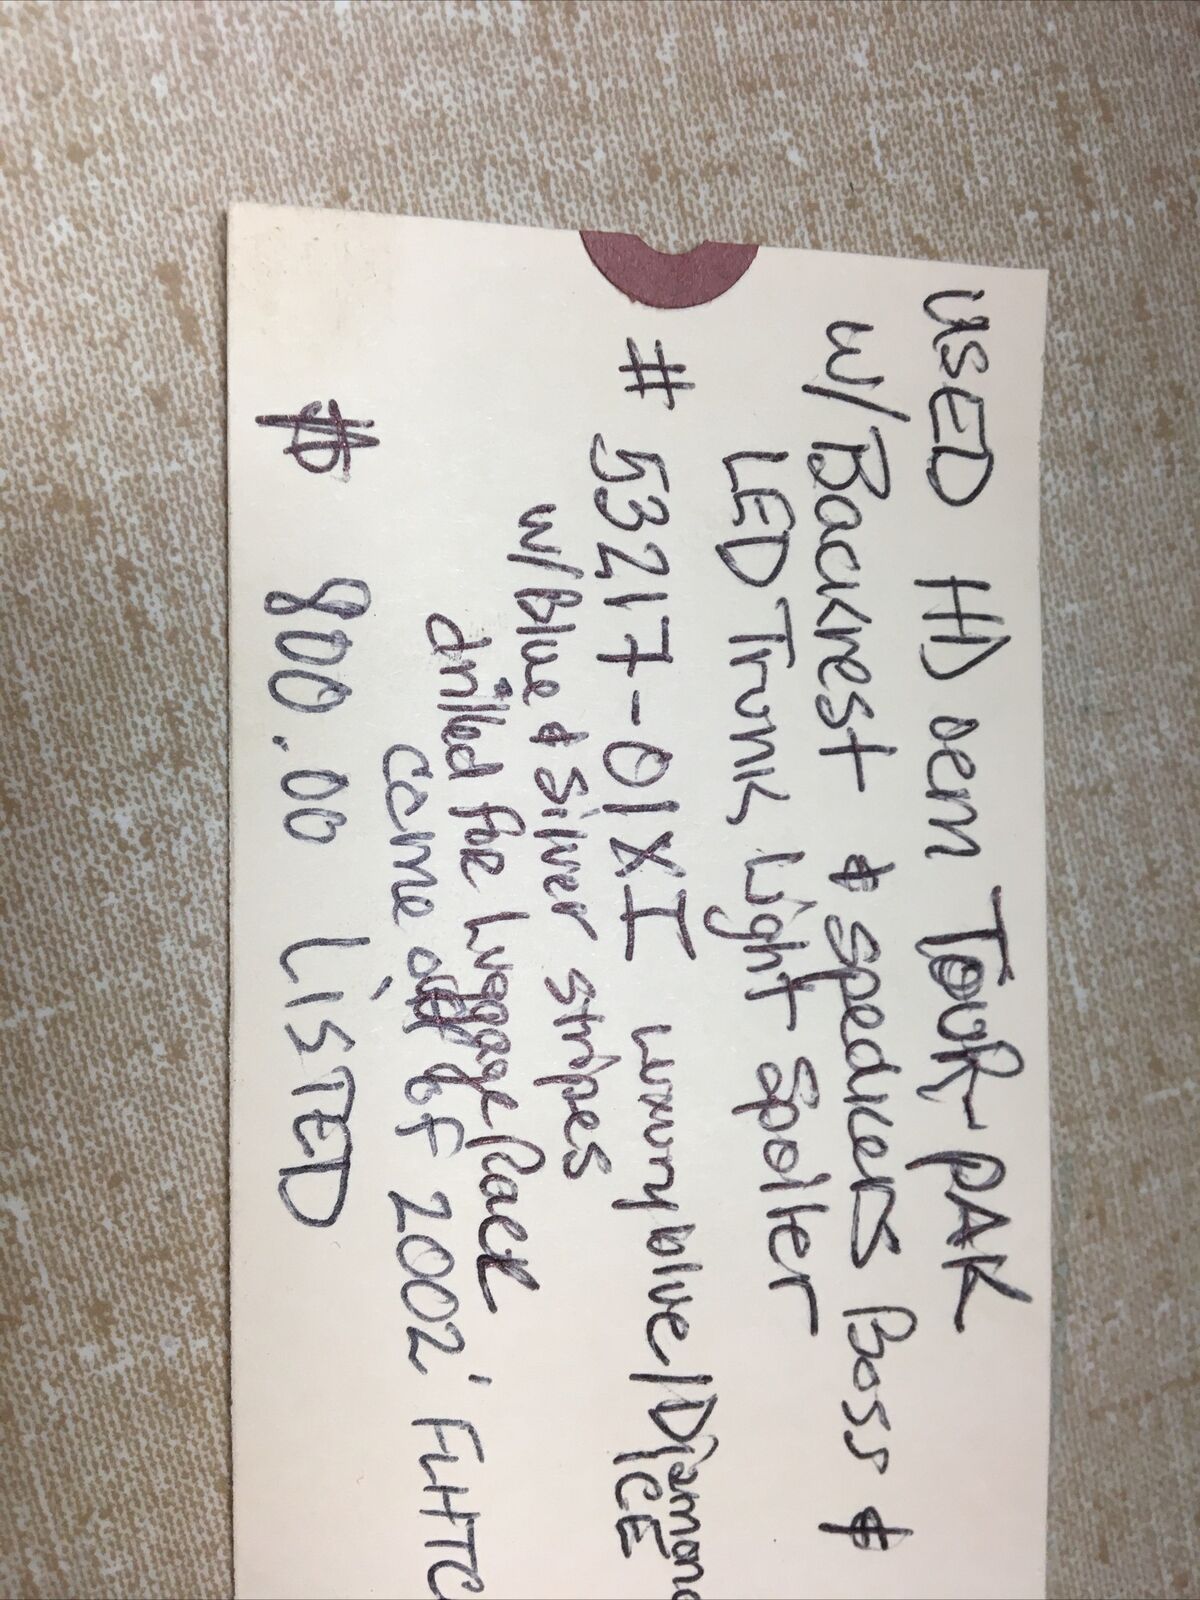 USED HD oem TOUR-PAK
w/Backrest & speakers Boss &
LED Trunk Light Spoiler
# 53217-01XI Luxury blue/Diamond
ICE
w/Blue & Silver stripes
drilled for Luggage Rack
came off of 2002' FLHTC
$ 800.00 LISTED